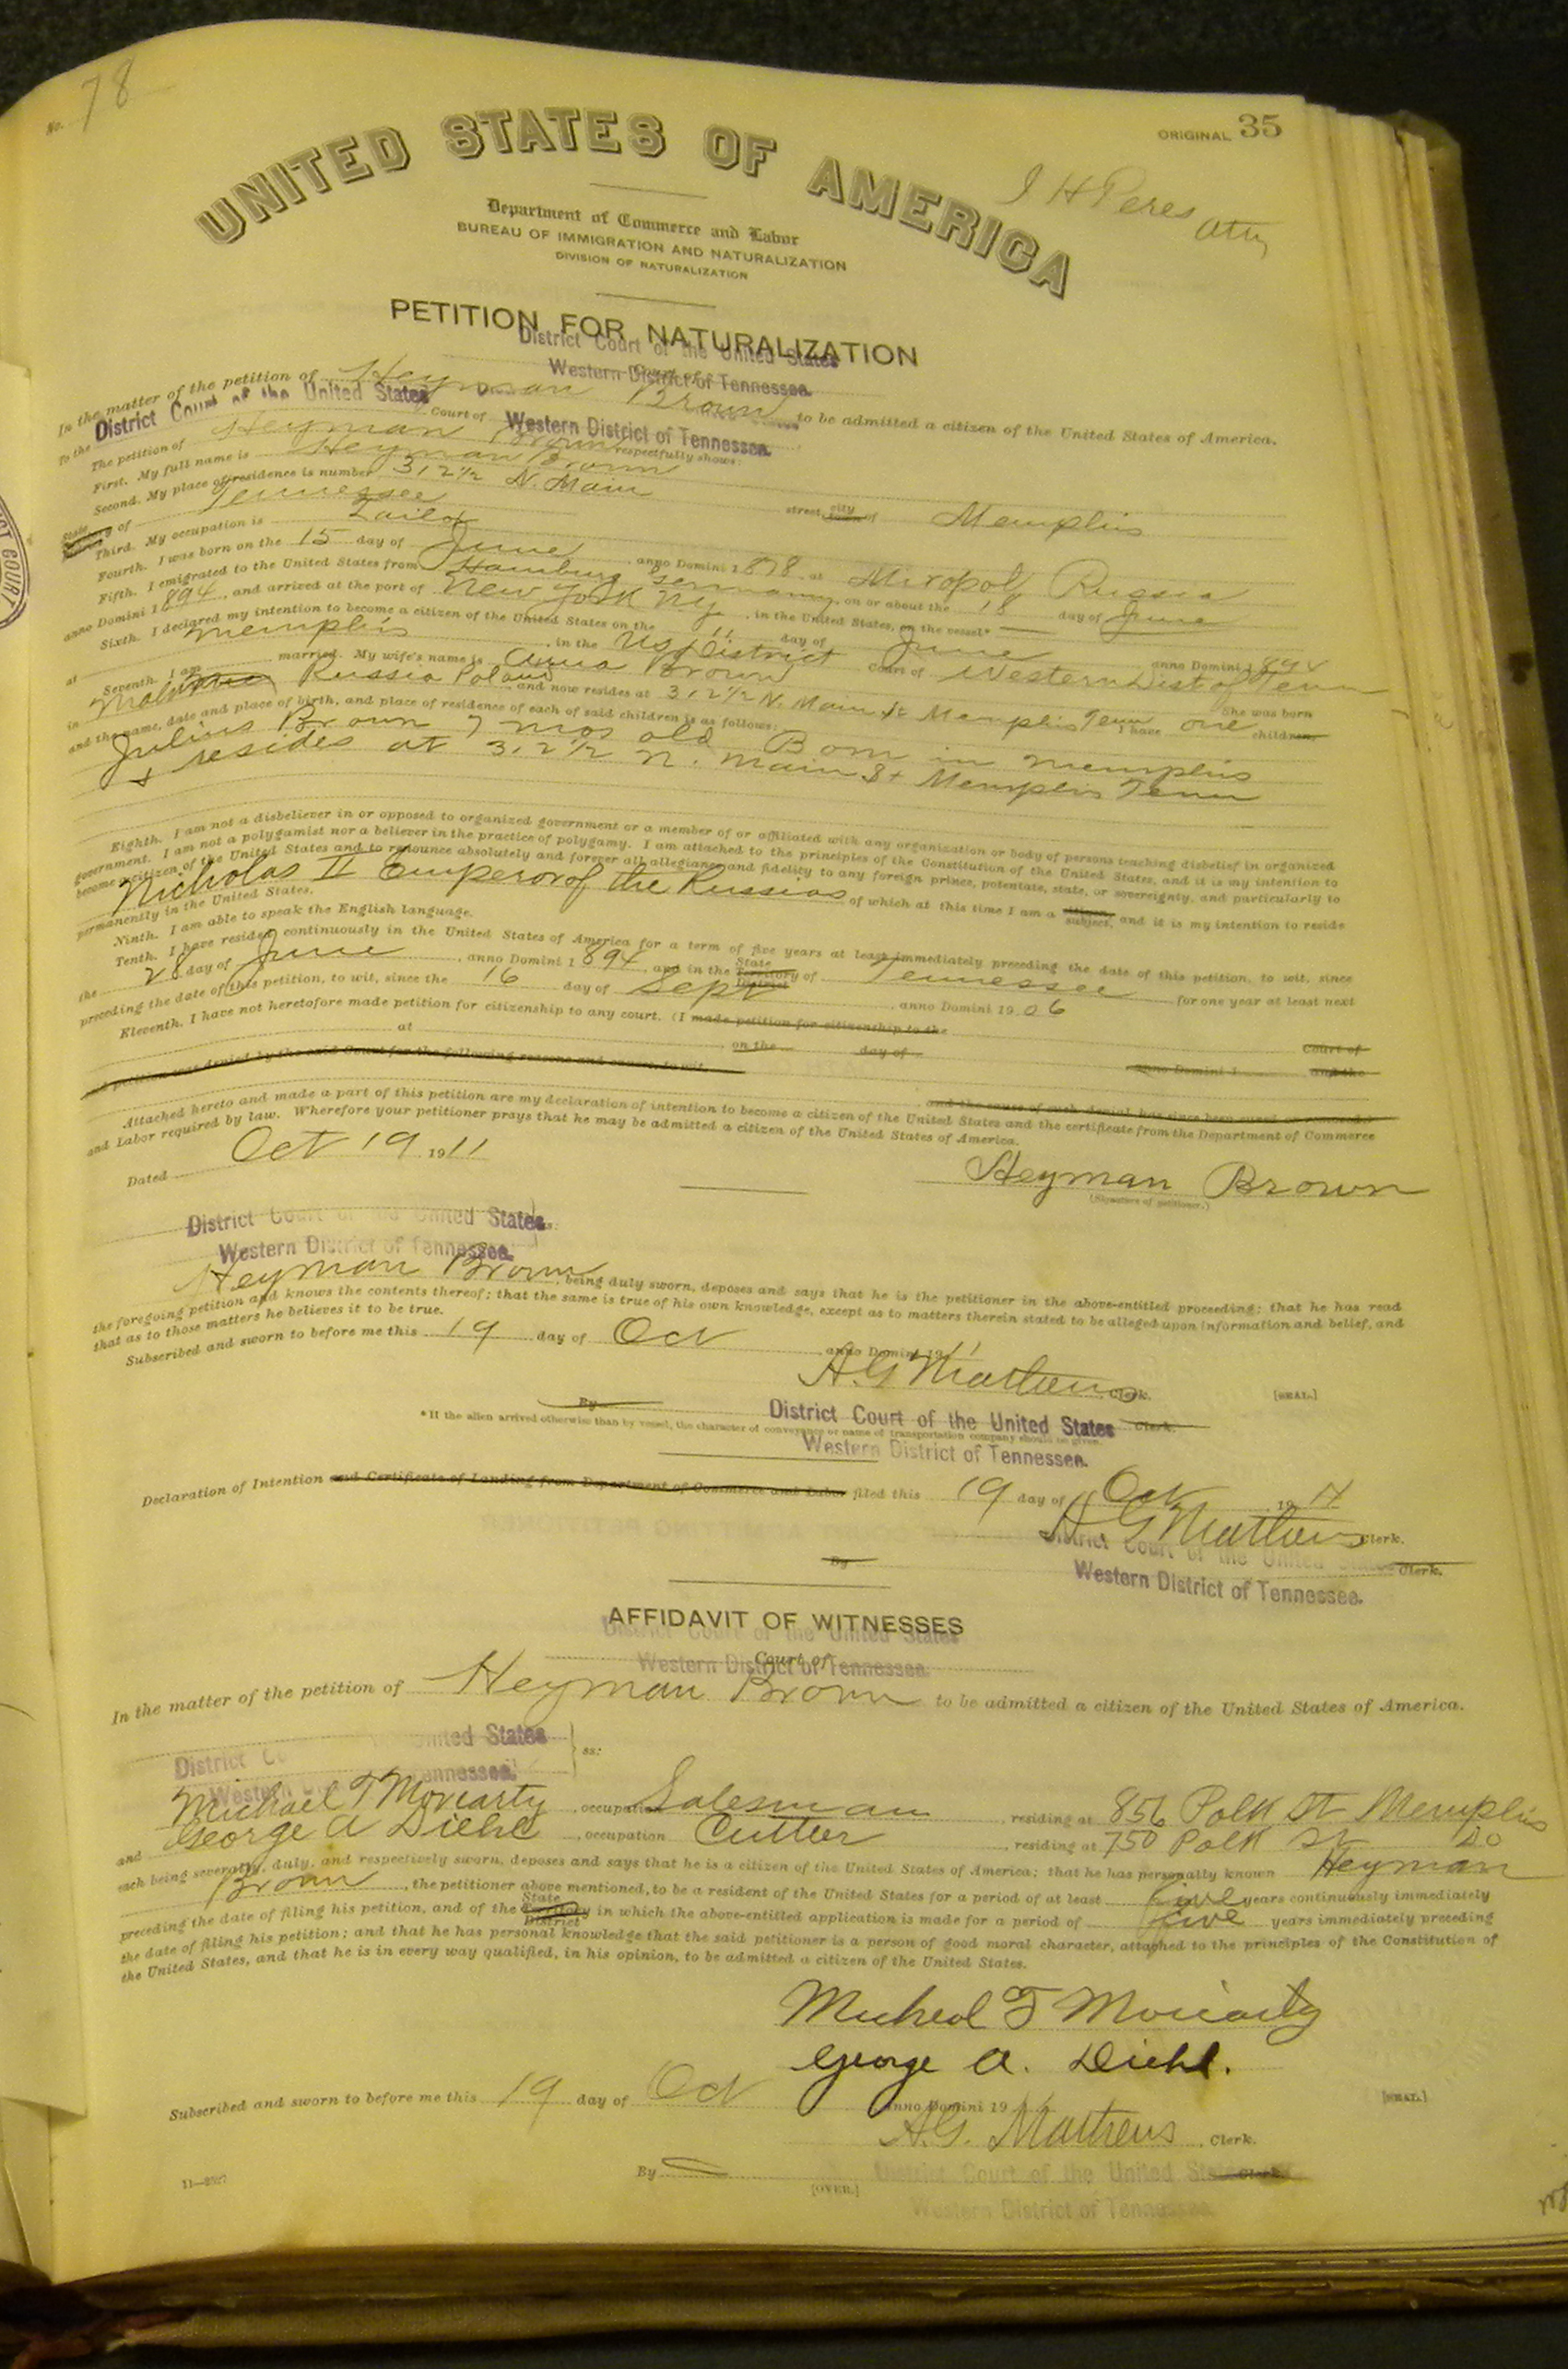 No. 78
ORIGINAL 35
UNITED STATES OF AMERICA
I H Peres
Atty
Department of Commerce and Labor
BUREAU OF IMMIGRATION AND NATURALIZATION
DIVISION OF NATURALIZATION
PETITION FOR NATURALIZATION
District Court of the United States
Western District of Tennessee.
In the matter of the petition of Heyman Brown to be admitted a citizen of the United States of America.
To the District Court of the United States Court of Western District of Tennessee.
The petition of Heyman Brown respectfully shows:
First. My full name is Heyman Brown
Second. My place of residence is number 312½ N. Main street, city of Memphis
State of Tennessee
Third. My occupation is Tailor
Fourth. I was born on the 15 day of June, anno Domini 1878 at Miropol, Russia
Fifth. I emigrated to the United States from Hamburg Germany, on or about the 18 day of June
anno Domini 1894, and arrived at the port of New York NY, in the United States, on the vessel*
Sixth. I declared my intention to become a citizen of the United States on the 11 day of June anno Domini 1894
at Memphis, in the US District Court of Western Dist of Tenn
Seventh. I am married. My wife's name is Anna Brown She was born
in Russia Poland and now resides at 312½ N. Main St Memphis Tenn I have one children
and the name, date and place of birth, and place of residence of each of said children is as follows:
Julius Brown 7 mos old Born in Memphis
& resides at 312½ N. Main St Memphis Tenn
Eighth. I am not a disbeliever in or opposed to organized government or a member of or affiliated with any organization or body of persons teaching disbelief in organized
government. I am not a polygamist nor a believer in the practice of polygamy. I am attached to the principles of the Constitution of the United States, and it is my intention to
become a citizen of the United States and to renounce absolutely and forever all allegiance and fidelity to any foreign prince, potentate, state, or sovereignty, and particularly to
Nicholas II Emperor of the Russias of which at this time I am a citizen subject, and it is my intention to reside
permanently in the United States.
Ninth. I am able to speak the English language.
Tenth. I have resided continuously in the United States of America for a term of five years at least immediately preceding the date of this petition, to wit, since
the 28 day of June, anno Domini 1894, and in the State Territory District of Tennessee for one year at least next
preceding the date of this petition, to wit, since the 16 day of Sept, anno Domini 1906
Eleventh. I have not heretofore made petition for citizenship to any court. (I made petition for citizenship to the
at on the day of Court of
anno Domini 1 and the
said petition was denied by the said Court for the following reasons and causes, to wit,
and the cause of such denial has since been cured or removed.)
Attached hereto and made a part of this petition are my declaration of intention to become a citizen of the United States and the certificate from the Department of Commerce
and Labor required by law. Wherefore your petitioner prays that he may be admitted a citizen of the United States of America.
Dated Oct 19 1911
Heyman Brown
(Signature of petitioner.)
District Court of the United States ss:
Western District of Tennessee.
Heyman Brown, being duly sworn, deposes and says that he is the petitioner in the above-entitled proceeding; that he has read
the foregoing petition and knows the contents thereof; that the same is true of his own knowledge, except as to matters therein stated to be alleged upon information and belief, and
that as to those matters he believes it to be true.
Subscribed and sworn to before me this 19 day of Oct, anno Domini 1911
A G Mathews Clerk. [SEAL.]
By Clerk.
District Court of the United States
*If the alien arrived otherwise than by vessel, the character of conveyance or name of transportation company should be given.
Western District of Tennessee.
Declaration of Intention and Certificate of Landing from Department of Commerce and Labor filed this 19 day of Oct, 1911
A G Mathews Clerk.
District Court of the United States
By Clerk.
Western District of Tennessee.
AFFIDAVIT OF WITNESSES
District Court of the United States
Court of
Western District of Tennessee.
In the matter of the petition of Heyman Brown to be admitted a citizen of the United States of America.
District Court United States ss:
Western District Tennessee.
Michael T Moriarty, occupation Salesman, residing at 856 Polk St Memphis
and George A Diehl, occupation Cutter, residing at 750 Polk St Do
each being severally, duly, and respectively sworn, deposes and says that he is a citizen of the United States of America; that he has personally known Heyman
Brown, the petitioner above mentioned, to be a resident of the United States for a period of at least five years continuously immediately
preceding the date of filing his petition, and of the State Territory District in which the above-entitled application is made for a period of five years immediately preceding
the date of filing his petition; and that he has personal knowledge that the said petitioner is a person of good moral character, attached to the principles of the Constitution of
the United States, and that he is in every way qualified, in his opinion, to be admitted a citizen of the United States.
Micheal T Moriarty
George A. Diehl.
Subscribed and sworn to before me this 19 day of Oct anno Domini 19 [SEAL.]
A.G. Mathews, Clerk.
By Clerk.
District Court of the United States
[OVER.]
Western District of Tennessee.